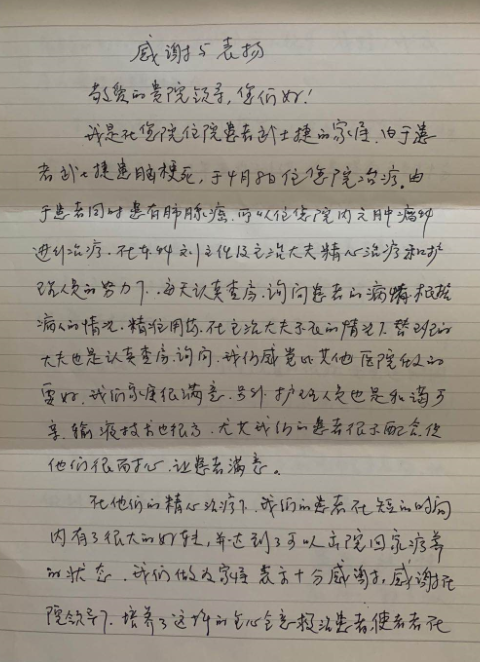 感谢与表扬
敬爱的贵院领导，您们好！
我是在您院住院患者武士捷的家属，由于患
者武士捷患脑梗死，于4月8日住您院治疗。由
于患者同时患有肺脓疡，所以住您院内元肿病科
进行治疗。在本科刘主任及主治大夫精心治疗和护
理人员的努力下，每天认真查房，询问患者的病情，根据
病人的情况，精准用药，在主治大夫不在的情况下，替班的
大夫也是认真查房，询问，我们感觉比其他医院做的
要好，我们家属很满意，另外护理人员也是和蔼可
亲，输液技术也很高，尤其我们的患者很不配合，但
他们很耐心，让患者满意。
在他们的精心治疗下，我们的患者在短的时间
内有了很大的好转，并达到了可以出院回家疗养
的状态，我们做为家属表示十分感谢，感谢在
院领导下，培养了这样的全心全意救治患者，使患者在